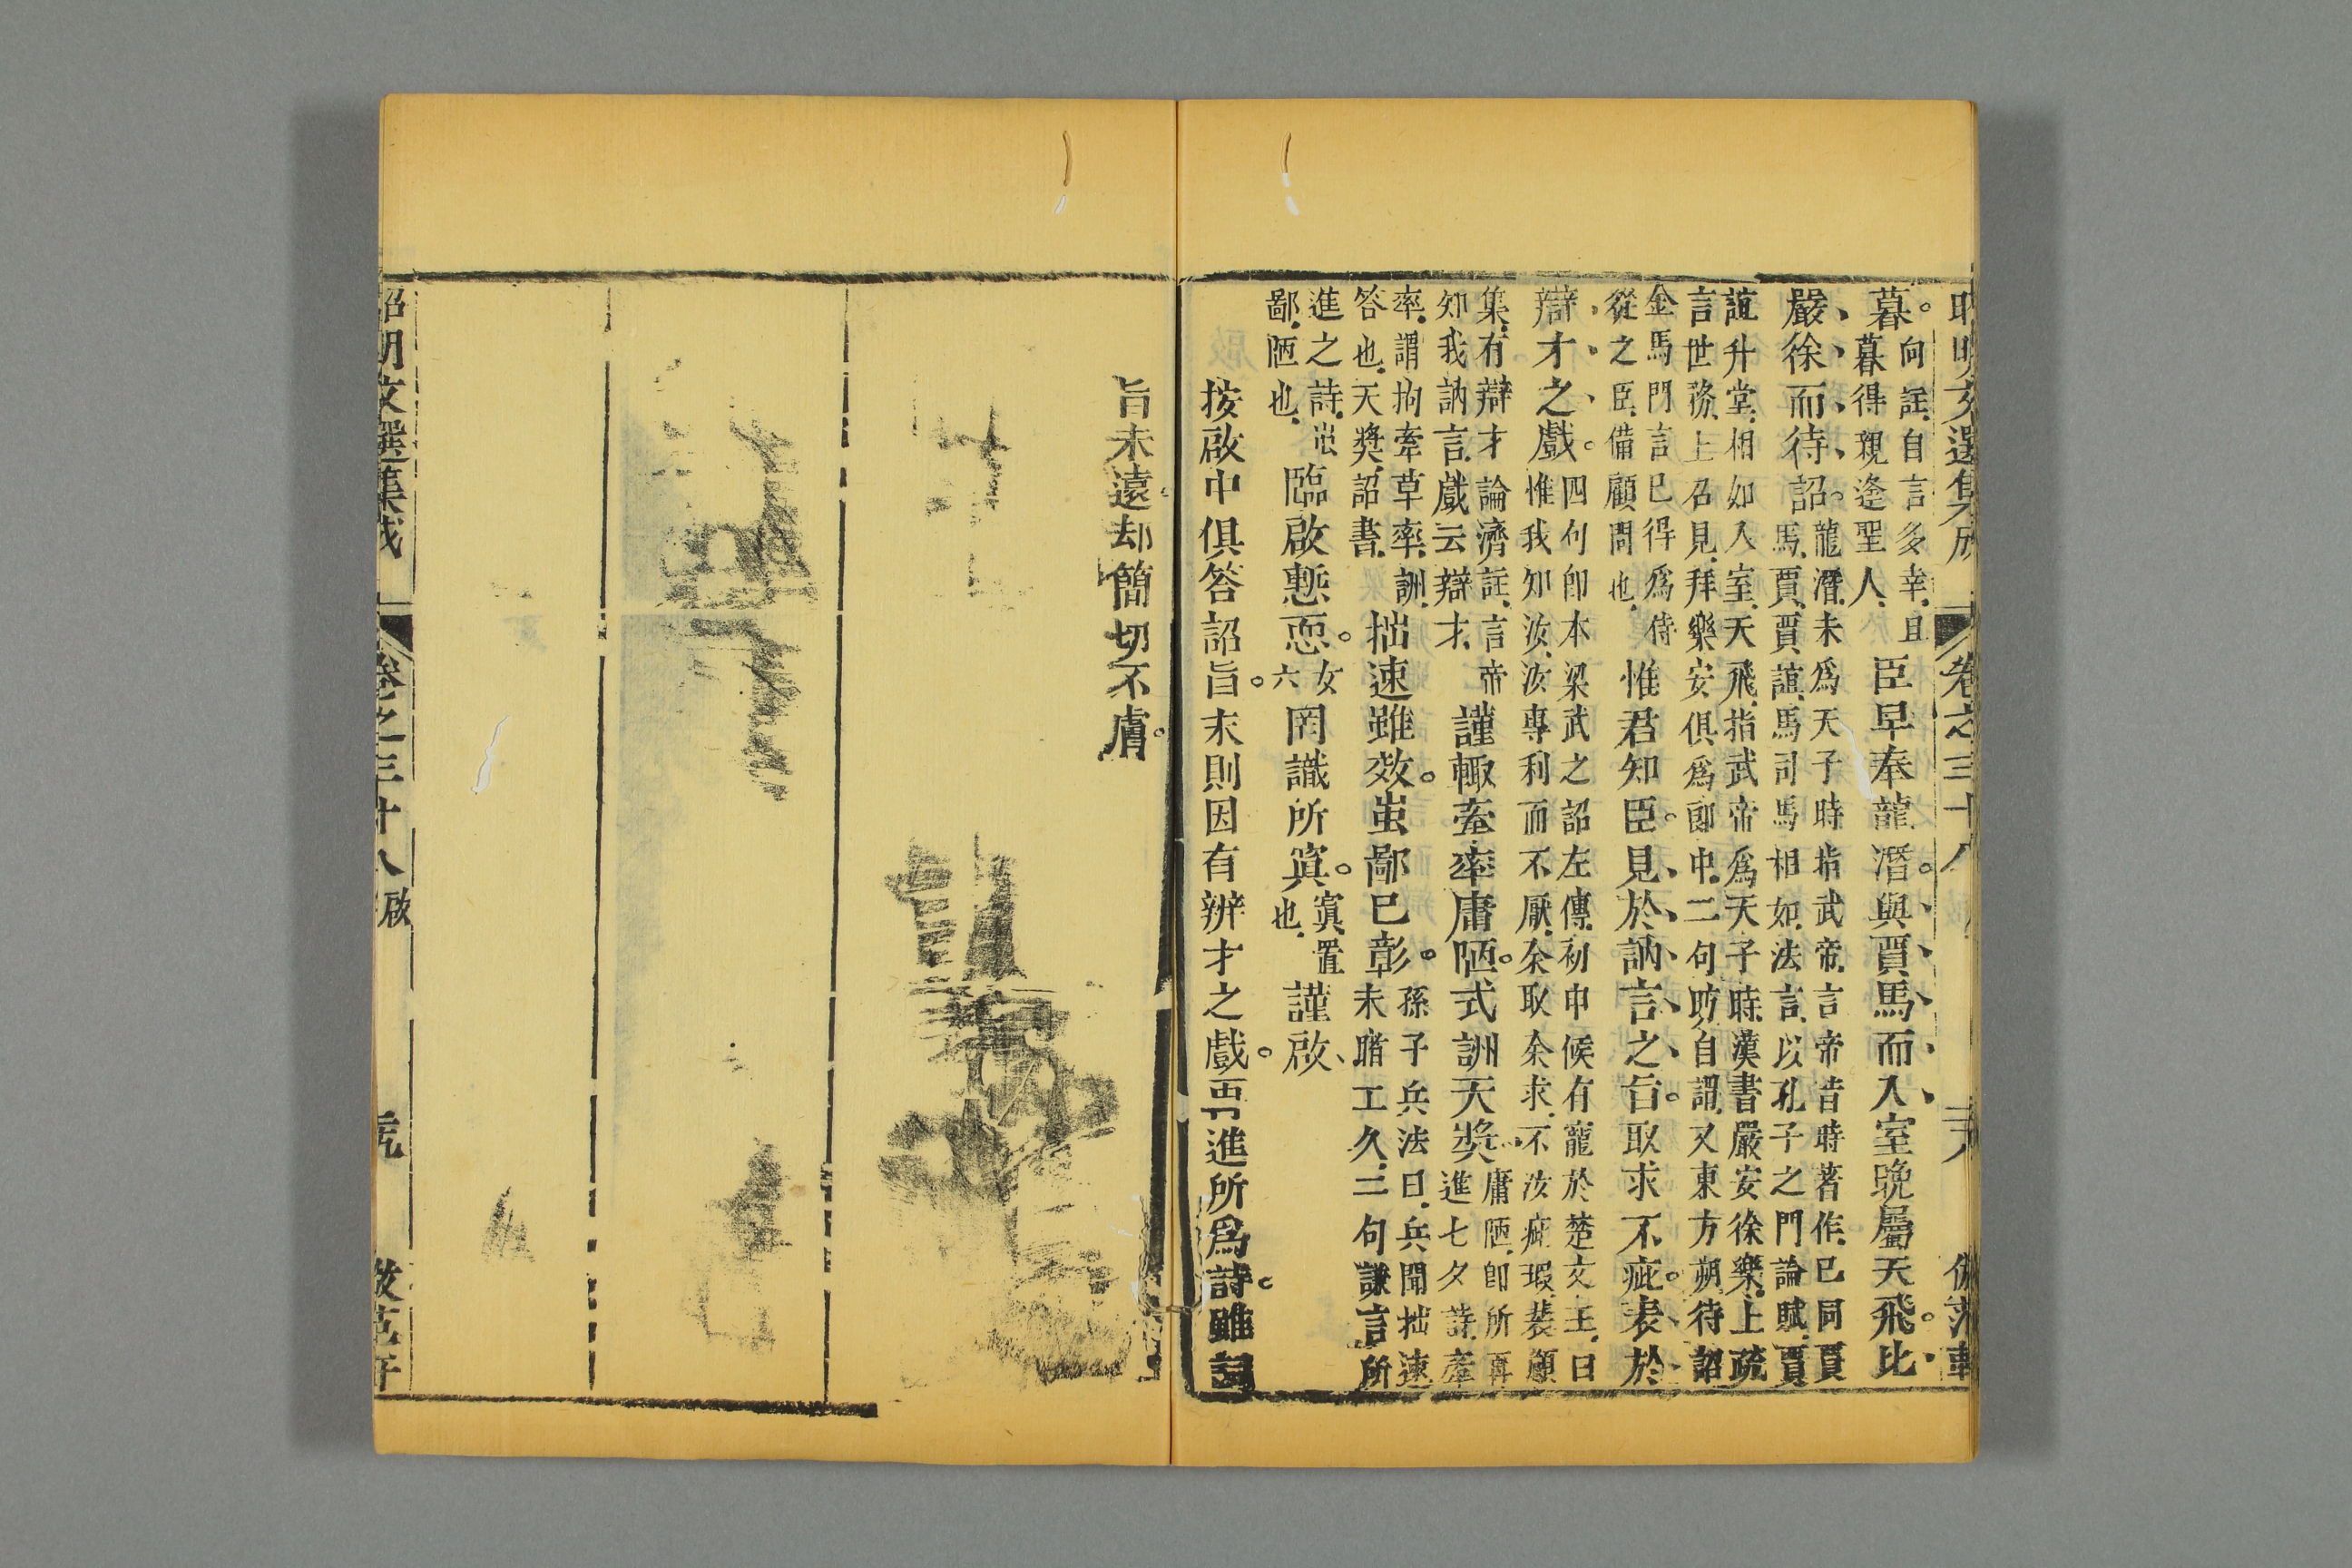 昭明文選集成　卷之三十八　三八　倣范軒
暮。
向註自言多幸且
暮得親逢聖人
臣早奉龍潛。與賈馬而入室晚屬天飛。比
嚴徐而待詔。
龍潛未爲天子時指武帝言帝昔時著作已同賈
馬賈賈誼馬司馬相如法言以孔子之門論賦賈
誼升堂相如入室天飛指武帝爲天子時漢書嚴安徐樂上疏
言世務上召見拜樂安俱爲郎中二句昉自謂又東方朔待詔
金馬門言已得爲侍
從之臣備顧問也
惟君知臣。見於訥言之旨。取求不疵。表於
辯才之戲。
四句卽本梁武之詔左傳初申侯有寵於楚文王曰
惟我知汝汝專利而不厭余取余求不汝疵瑕裴頠
集有辯才論濟註言帝
知我訥言戲云辯才
謹輒牽率庸陋。式詶天奬
庸陋卽所再
進七夕詩牽
率謂拘牽草率詶
答也天奬詔書
拙速雖效。蚩鄙已彰。
孫子兵法曰兵聞拙速
未睹工久三句謙言所
進之詩蚩
鄙陋也
臨啟慙恧。
女
六
罔識所寘。
寘置
也
謹啟
按啟中俱答詔旨。末則因有辨才之戲。再進所爲詩。雖詞
旨未遠。却簡切不膚。
昭明文選集成　卷之三十八　啟　倣范軒